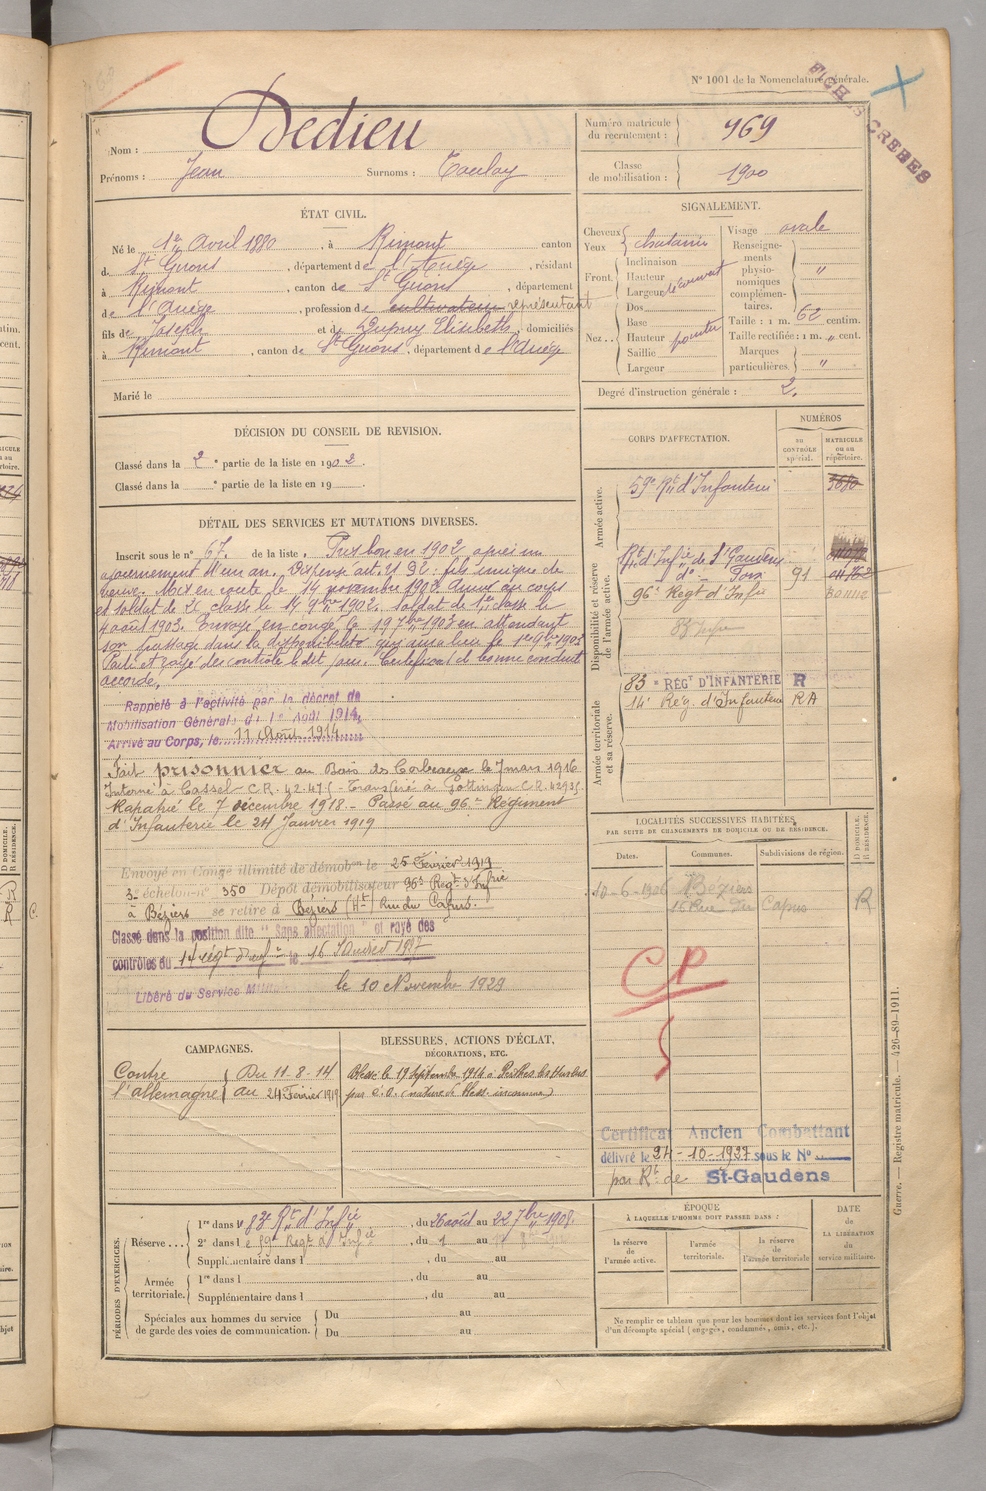 N° 1001 de la Nomenclature générale.
Nom : Dedieu
Prénoms : Jean Surnoms :
Numéro matricule du recrutement : 969
Classe de mobilisation : 1900
ÉTAT CIVIL.
Né le 1er Avril 1880, à Rimont canton
de St Girons, département de l'Ariège, résidant
à Rimont, canton de St Girons, département
de l'Ariège, profession de cultivateur représentant
fils de Joseph et de Dupuy Elisabeth, domiciliés
à Rimont, canton de St Girons, département de l'Ariège
Marié le
SIGNALEMENT.
Cheveux
Yeux
chatains
Front.
Inclinaison
Hauteur
Largeur
découvert
Nez...
Dos
Base
Hauteur
Saillie
Largeur
pointu
Visage ovale
Renseignements physionomiques complémentaires. "
Taille : 1 m. 62 centim.
Taille rectifiée : 1 m. " cent.
Marques particulières "
Degré d'instruction générale : 2.
DÉCISION DU CONSEIL DE REVISION.
Classé dans la 2e partie de la liste en 1902.
Classé dans la e partie de la liste en 19
DÉTAIL DES SERVICES ET MUTATIONS DIVERSES.
Inscrit sous le n° 67. de la liste. Pris bon en 1902 après un
ajournement d'un an. Dispensé art. 21 92 : fils unique de
veuve. Mis en route le 14 novembre 1902. Arrivé au corps
et soldat de 2e classe le 14 9bre 1902. Soldat de 1ere classe le
4 août 1903. Envoyé en congé le 19 7bre 1903 en attendant
son passage dans la disponibilité qui aura lieu le 1er 9bre 1903
Parti et rayé des contrôles ledit jour. Certificat de bonne conduite
accordé.
Rappelé à l'activité par le décret de
Mobilisation Générale du 1er Août 1914.
Arrivé au Corps, le 11 Août 1914
Fait prisonnier au Bois des Corbeaux le 7 mars 1916
Interné à Cassel C.R. 42.475 - Transféré à Göttingen C.R. 42935.
Rapatrié le 7 décembre 1918 - Passé au 96e Régiment
d'Infanterie le 24 Janvier 1919
Envoyé en Congé illimité de démobon le 25 Février 1919
3e échelon n° 350 Dépôt démobilisateur 96e Regt d'Infie
à Béziers se retire à Béziers (Ht) Rue du Capus.
Classé dans la position dite "Sans affectation" et rayé des
contrôles du 14 régt d'infie le 16 1927
Libéré du Service Militaire le 10 Novembre 1929
CORPS D'AFFECTATION.
NUMÉROS
au contrôle spécial.
MATRICULE ou au répertoire.
Armée active.
59e Rt d'Infanterie
Disponibilité et réserve de l'armée active.
Rt d'Infie de St Gaudens
do Foix 91
96e Régt d'Infie
83 Infie
Armée territoriale et sa réserve.
83e RÉGT D'INFANTERIE R
14e Rég. d'Infanterie RA
LOCALITÉS SUCCESSIVES HABITÉES
PAR SUITE DE CHANGEMENTS DE DOMICILE OU DE RÉSIDENCE.
Dates. Communes. Subdivisions de région. D DOMICILE. R RÉSIDENCE.
10-6-1906 Béziers
16 Rue du Capus R
CP
CAMPAGNES.
Contre l'allemagne
Du 11.8.14
au 24 Février 1919
BLESSURES, ACTIONS D'ÉCLAT,
DÉCORATIONS, ETC.
Blessé le 19 Septembre 1914 à Perthes les Hurlus
par é.o. (nature de bless. inconnue)
Certificat Ancien Combattant
délivré le 24-10-1927 sous le N°
par Rt de St-Gaudens
PÉRIODES D'EXERCICES.
Réserve...
1re dans le 83e Rt d'Infie, du 26 août au 22 7bre 1908.
2e dans le 59e Regt d'Infie, du 1 au
Supplémentaire dans l , du au
Armée territoriale.
1re dans l , du au
Supplémentaire dans l , du au
Spéciales aux hommes du service
de garde des voies de communication.
Du au
Du au
ÉPOQUE
À LAQUELLE L'HOMME DOIT PASSER DANS :
la réserve de l'armée active.
l'armée territoriale.
la réserve de l'armée territoriale
DATE de LA LIBÉRATION du service militaire.
Ne remplir ce tableau que pour les hommes dont les services font l'objet
d'un décompte spécial (engagés, condamnés, omis, etc.).
Guerre. — Registre matricule. — 426-89-1911.